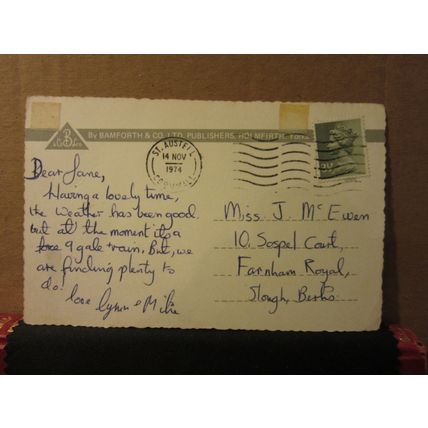 By BAMFORTH & CO. LTD. PUBLISHERS, HOLMFIRTH, Yorks
B
ST. AUSTELL
14 NOV
1974
CORNWALL
Dear Jane,
Having a lovely time,
the weather has been good
but at the moment its a
force 9 gale + rain. But, we
are finding plenty to
do! love Lynn + Mike
Miss J. McEwen
10, Sospel Court,
Farnham Royal,
Slough, Berks